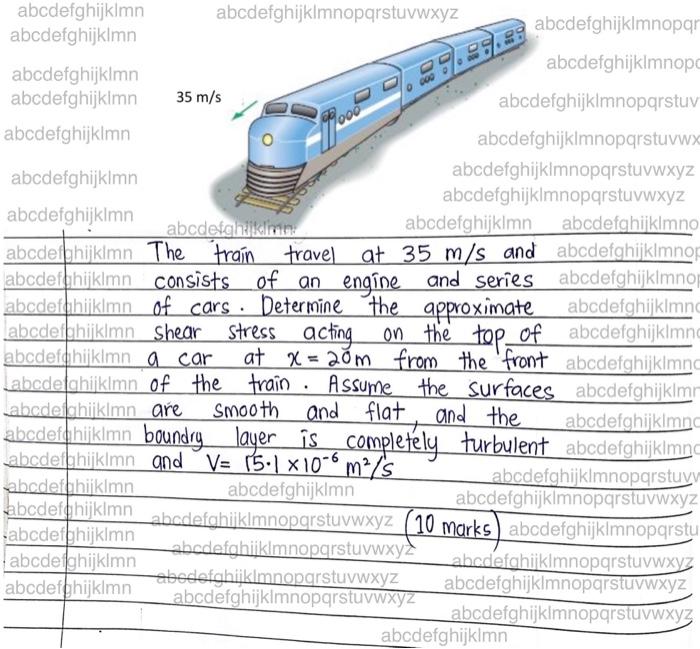 abcdefghijklmn abcdefghijklmnopqrstuvwxyz abcdefghijklmnopqr
abcdefghijklmn
abcdefghijklmnopq
abcdefghijklmn
abcdefghijklmn 35 m/s abcdefghijklmnopqrstuv
abcdefghijklmn abcdefghijklmnopqrstuvwx
abcdefghijklmn abcdefghijklmnopqrstuvwxyz
abcdefghijklmnopqrstuvwxyz
abcdefghijklmn abcdefghijklmn abcdefghijklmn abcdefghijklmno
abcdefghijklmn The train travel at 35 m/s and abcdefghijklmnop
abcdefghijklmn consists of an engine and series abcdefghijklmnop
abcdefghijklmn of cars. Determine the approximate abcdefghijklmn
abcdefghijklmn shear stress acting on the top of abcdefghijklmn
abcdefghijklmn a car at x = 20m from the front abcdefghijklmn
abcdefghijklmn of the train. Assume the surfaces abcdefghijklmn
abcdefghijklmn are smooth and flat, and the abcdefghijklmn
abcdefghijklmn boundry layer is completely turbulent abcdefghijklmn
abcdefghijklmn and V= 15.1 ×10⁻⁶ m²/s abcdefghijklmnopqrstuv
abcdefghijklmn abcdefghijklmn abcdefghijklmnopqrstuvwxyz
abcdefghijklmn abcdefghijklmnopqrstuvwxyz (10 marks) abcdefghijklmnopqrstu
abcdefghijklmn abcdefghijklmnopqrstuvwxyz
abcdefghijklmn abcdefghijklmnopqrstuvwxyz
abcdefghijklmn abcdefghijklmnopqrstuvwxyz abcdefghijklmnopqrstuvwxyz
abcdefghijklmnopqrstuvwxyz
abcdefghijklmnopqrstuvwxyz
abcdefghijklmn